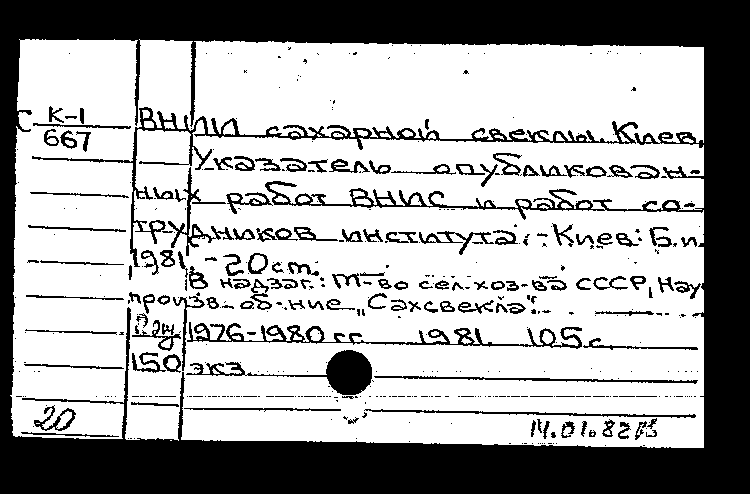 С К-1
667
ВНИИ сахарной свеклы. Киев.
Указатель опубликован-
ных работ ВНИС и работ со-
трудников института.-Киев: Б.и.
1981. -20см.
В надзаг.: М-во сел. хоз-ва СССР, Науч
произв. об-ние „Сахсвекла".
1976-1980 гг. 1981. 105с.
150 экз.
20
14.01.82